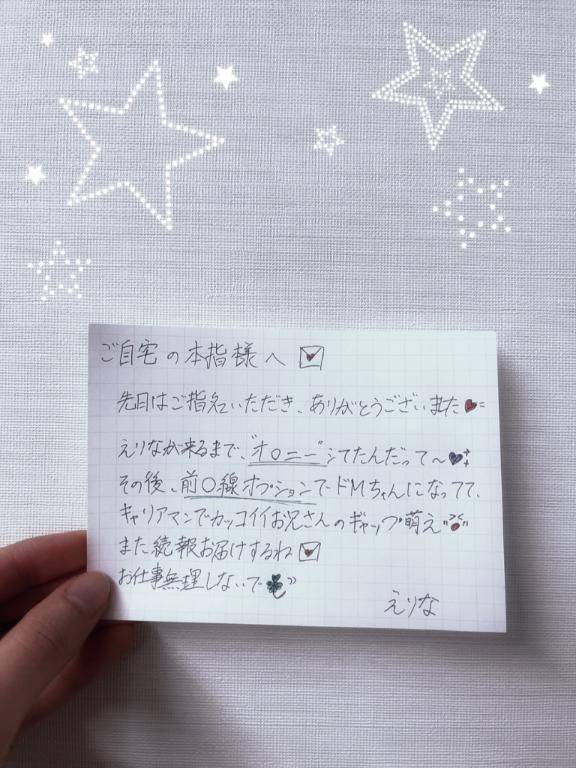 ご自宅の本指様へ
先日はご指名いただき、ありがとうございました
えりなが来るまで、"オ〇ニー"シてたんだって〜
その後、前〇線オプションでドMちゃんになってて、
キャリアマンでカッコイイお兄さんのギャップ萌え
また続報お届けするね
お仕事無理しないで
えりな